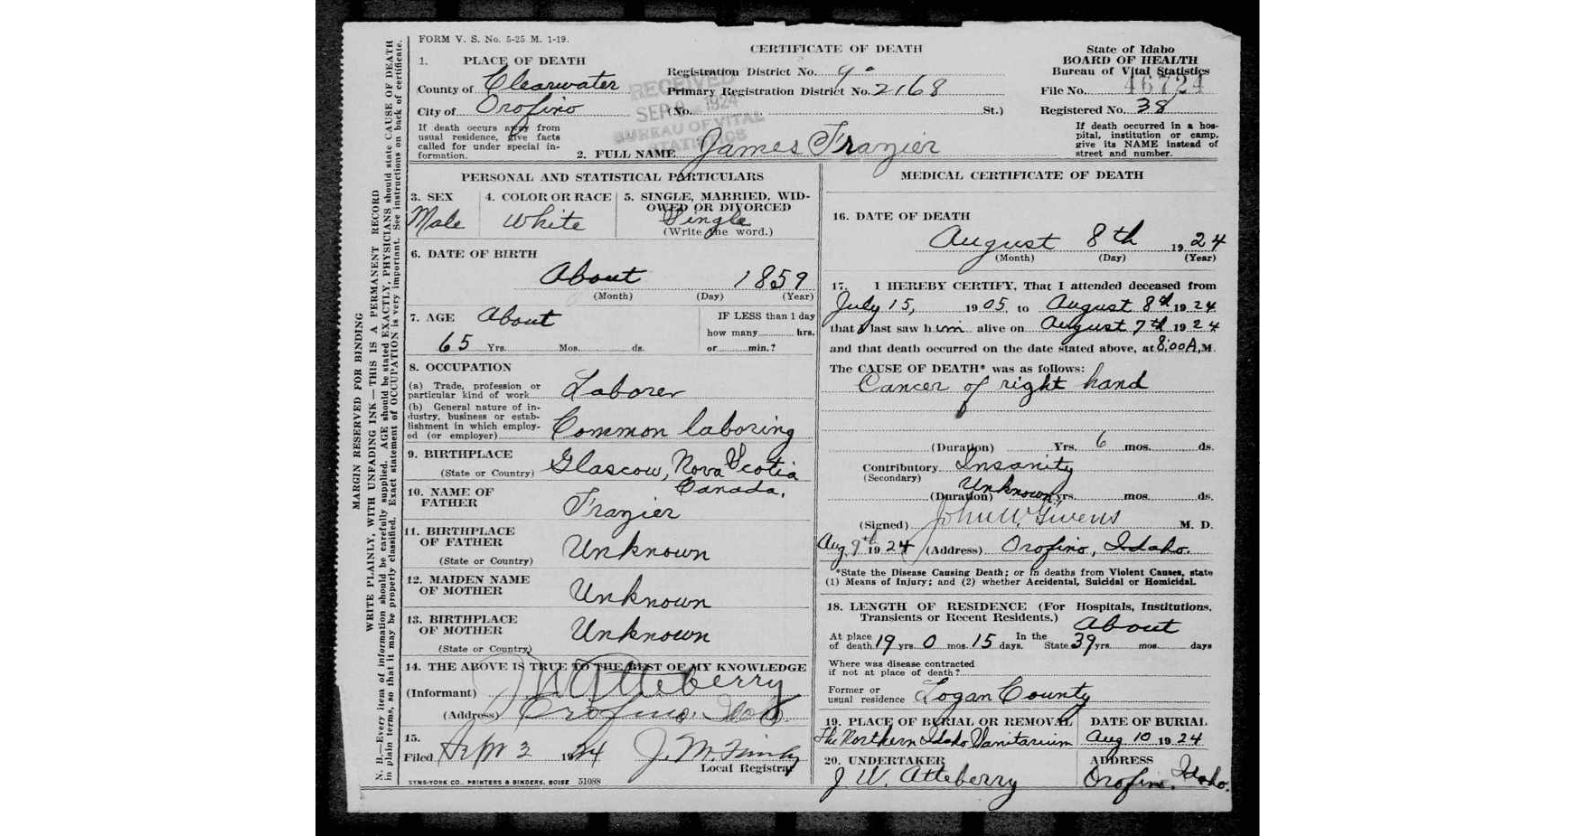 FORM V. S. No. 5-25 M. 1-19.
CERTIFICATE OF DEATH
State of Idaho
BOARD OF HEALTH
Bureau of Vital Statistics
1. PLACE OF DEATH
County of Clearwater
City of Orofino
If death occurs away from
usual residence, give facts
called for under special in-
formation.
Registration District No.
Primary Registration District No. 2168
(No. St.)
RECEIVED
SEP 1924
BUREAU OF VITAL
STATISTICS
File No. 46724
Registered No. 38
If death occurred in a hos-
pital, institution or camp,
give its NAME instead of
street and number.
2. FULL NAME James Frazier
PERSONAL AND STATISTICAL PARTICULARS
3. SEX
Male
4. COLOR OR RACE
White
5. SINGLE, MARRIED, WID-
OWED OR DIVORCED
Single
(Write the word.)
6. DATE OF BIRTH
About 1859
(Month) (Day) (Year)
7. AGE About
65 Yrs. Mos. ds.
IF LESS than 1 day
how many hrs.
or min.?
8. OCCUPATION
(a) Trade, profession or
particular kind of work Laborer
(b) General nature of in-
dustry, business or estab-
lishment in which employ-
ed (or employer) Common laboring
9. BIRTHPLACE
(State or Country) Glascow, Nova Scotia
Canada,
10. NAME OF
FATHER Frazier
11. BIRTHPLACE
OF FATHER Unknown
(State or Country)
12. MAIDEN NAME
OF MOTHER Unknown
13. BIRTHPLACE
OF MOTHER Unknown
(State or Country)
14. THE ABOVE IS TRUE TO THE BEST OF MY KNOWLEDGE
(Informant) J W Atteberry
(Address) Orofino, Idaho
15.
Filed Sept 2 1924
Local Registrar
SYMS-YORK CO., PRINTERS & BINDERS, BOISE 51088
MEDICAL CERTIFICATE OF DEATH
16. DATE OF DEATH
August 8th 1924
(Month) (Day) (Year)
17. I HEREBY CERTIFY, That I attended deceased from
July 15, 1905, to August 8th 1924
that I last saw him alive on August 7th 1924
and that death occurred on the date stated above, at 8:00 A.M.
The CAUSE OF DEATH* was as follows:
Cancer of right hand
(Duration) Yrs. 6 mos. ds.
Contributory Insanity
(Secondary)
(Duration) Unknown yrs. mos. ds.
(Signed) John W. Givens M. D.
Aug. 9th 1924 (Address) Orofino, Idaho.
*State the Disease Causing Death; or in deaths from Violent Causes, state
(1) Means of Injury; and (2) whether Accidental, Suicidal or Homicidal.
18. LENGTH OF RESIDENCE (For Hospitals, Institutions,
Transients or Recent Residents.)
About
At place
of death 19 yrs 0 mos. 15 days. In the
State 39 yrs. mos. days
Where was disease contracted
if not at place of death?
Former or
usual residence Logan County
19. PLACE OF BURIAL OR REMOVAL
The Northern Idaho Sanitarium
DATE OF BURIAL
Aug 10, 1924
20. UNDERTAKER
J. W. Atteberry
ADDRESS
Orofino, Idaho.
MARGIN RESERVED FOR BINDING
WRITE PLAINLY, WITH UNFADING INK—THIS IS A PERMANENT RECORD
N. B.—Every item of information should be carefully supplied. AGE should be stated EXACTLY. PHYSICIANS should state CAUSE OF DEATH
in plain terms, so that it may be properly classified. Exact statement of OCCUPATION is very important. See instructions on back of certificate.